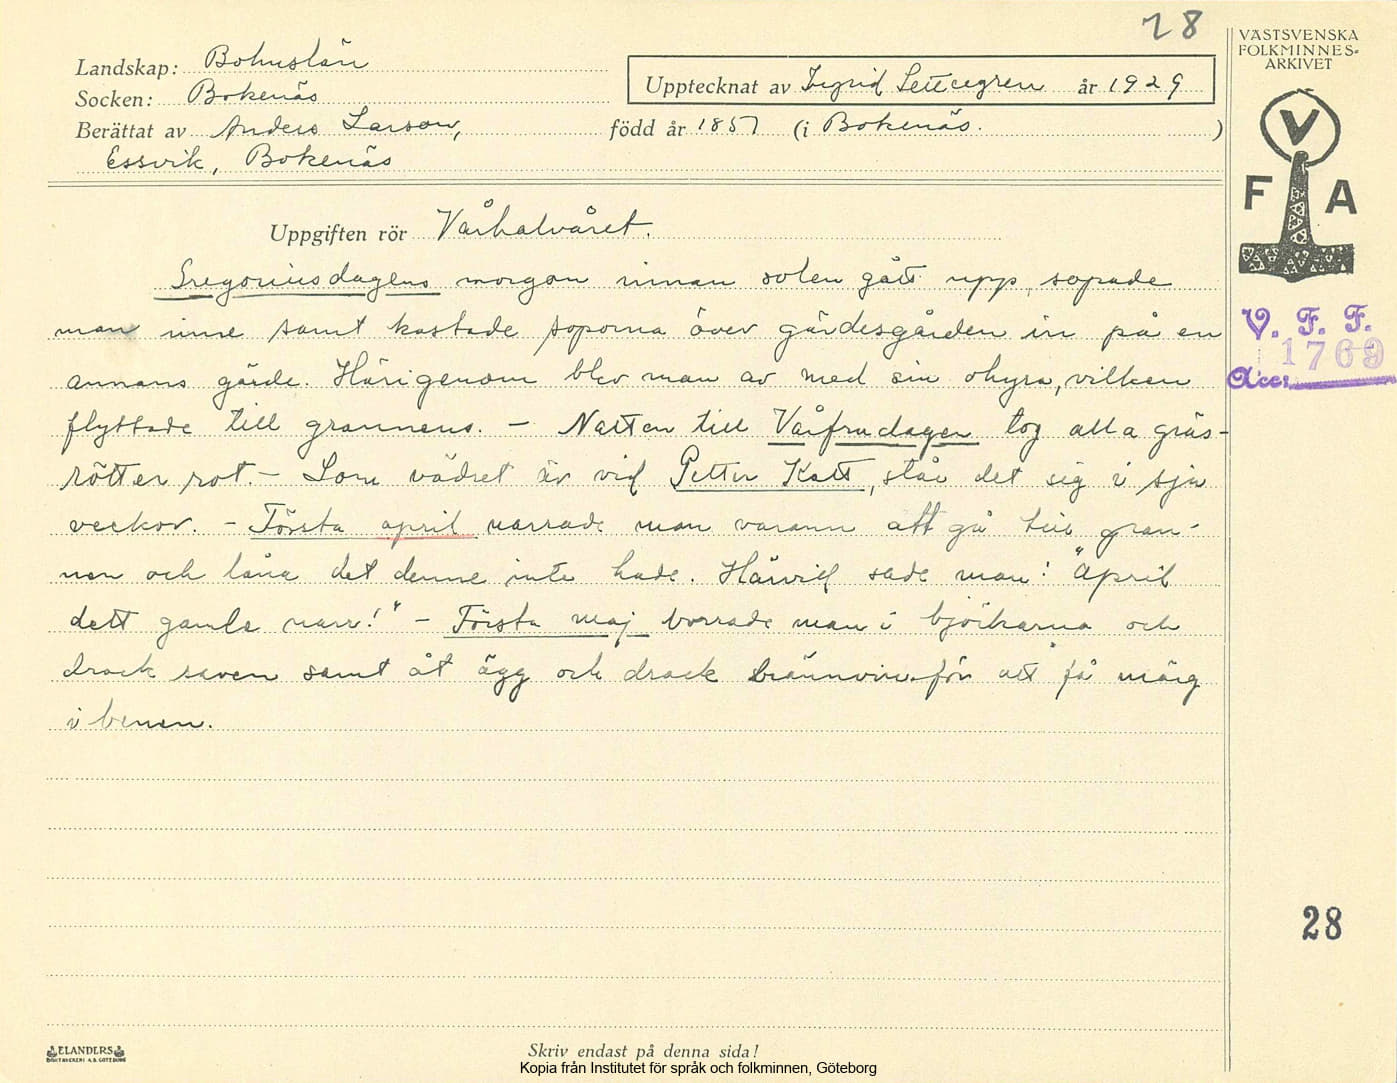 28
VÄSTSVENSKA
FOLKMINNES-
ARKIVET
Landskap: Bohuslän
Socken: Bokenäs
Upptecknat av Ingrid år 1929
Berättat av Anders Larson, född år 1857 (i Bokenäs. )
Essvik, Bokenäs
V
F A
Uppgiften rör Vårhalvåret.
Gregoriusdagens morgon innan solen gått upp, sopade
man inne samt kastade soporna över gärdesgården in på en
annans gärde. Härigenom blev man av med sin ohyra, vilken
flyttade till grannens. - Natten till Vårfrudagen tog alla gräs-
rötter rot. - Som vädret är vid Petter Katt, står det sig i sju
veckor. - Första april narrade man varann att gå till gran-
nen och låna det denne inte hade. Härvid sade man: "April
dett gamle narr!" - Första maj borrade man i björkarna och
drack saven samt åt ägg och drack brännvin för att få märg
i benen.
V. F. F.
1769
Acc:
28
ELANDERS
BOKTRYCKERI A.B. GÖTEBORG
Skriv endast på denna sida!
Kopia från Institutet för språk och folkminnen, Göteborg